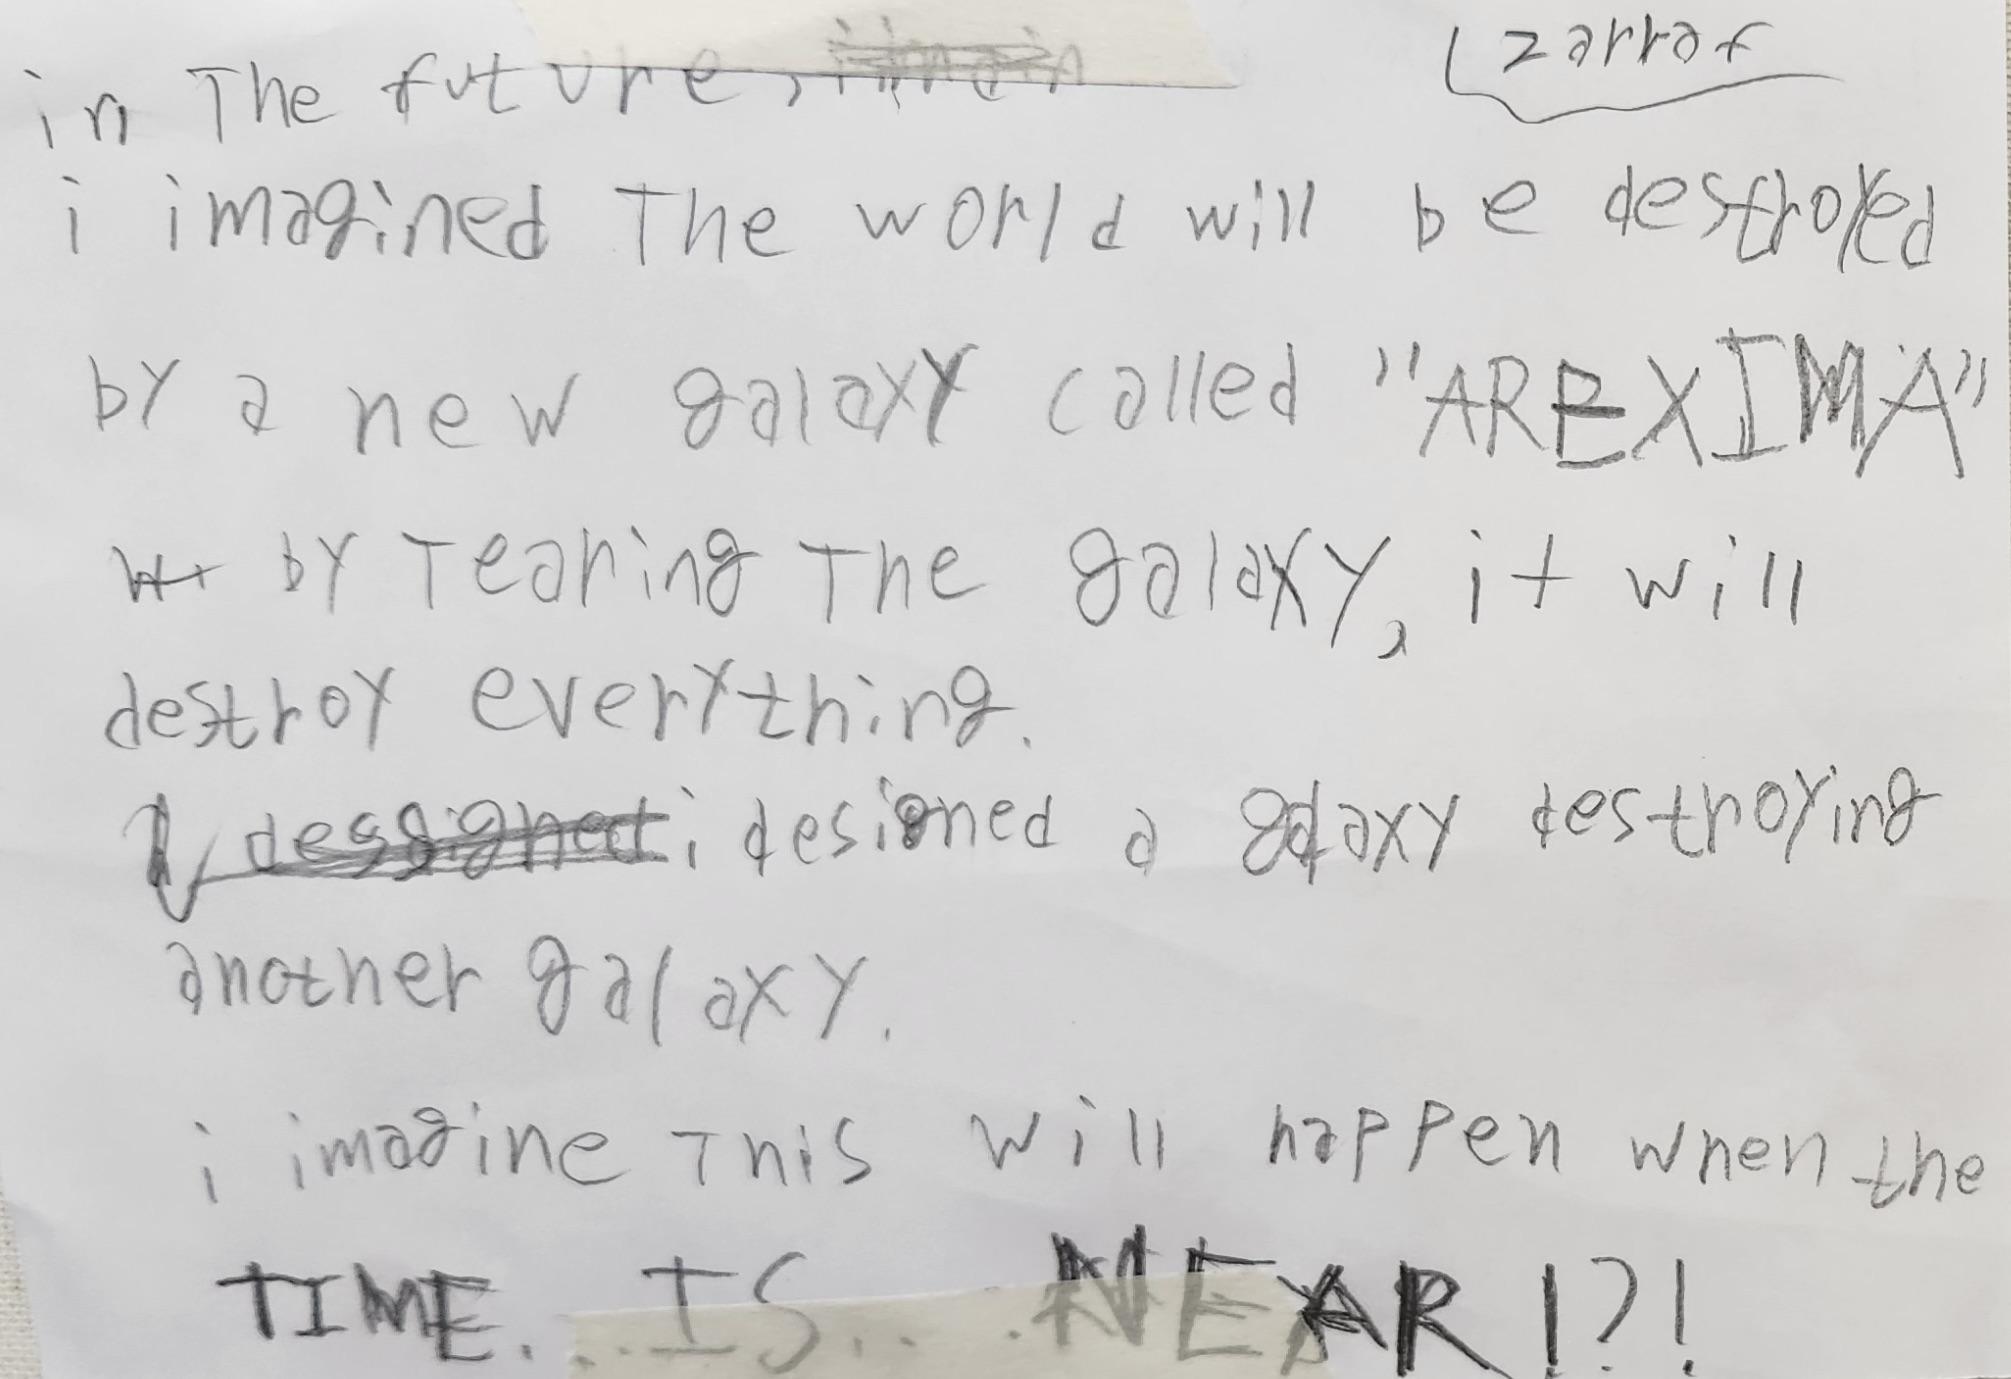 zarraf
in The future,
i imagined The world will be destroyed
by a new galaxy called "AREXIMA"
by Tearing The galaxy, it will
destroy everything.
i designed a galaxy destroying
another galaxy.
i imagine This will happen when the
TIME... IS... NEAR!?!